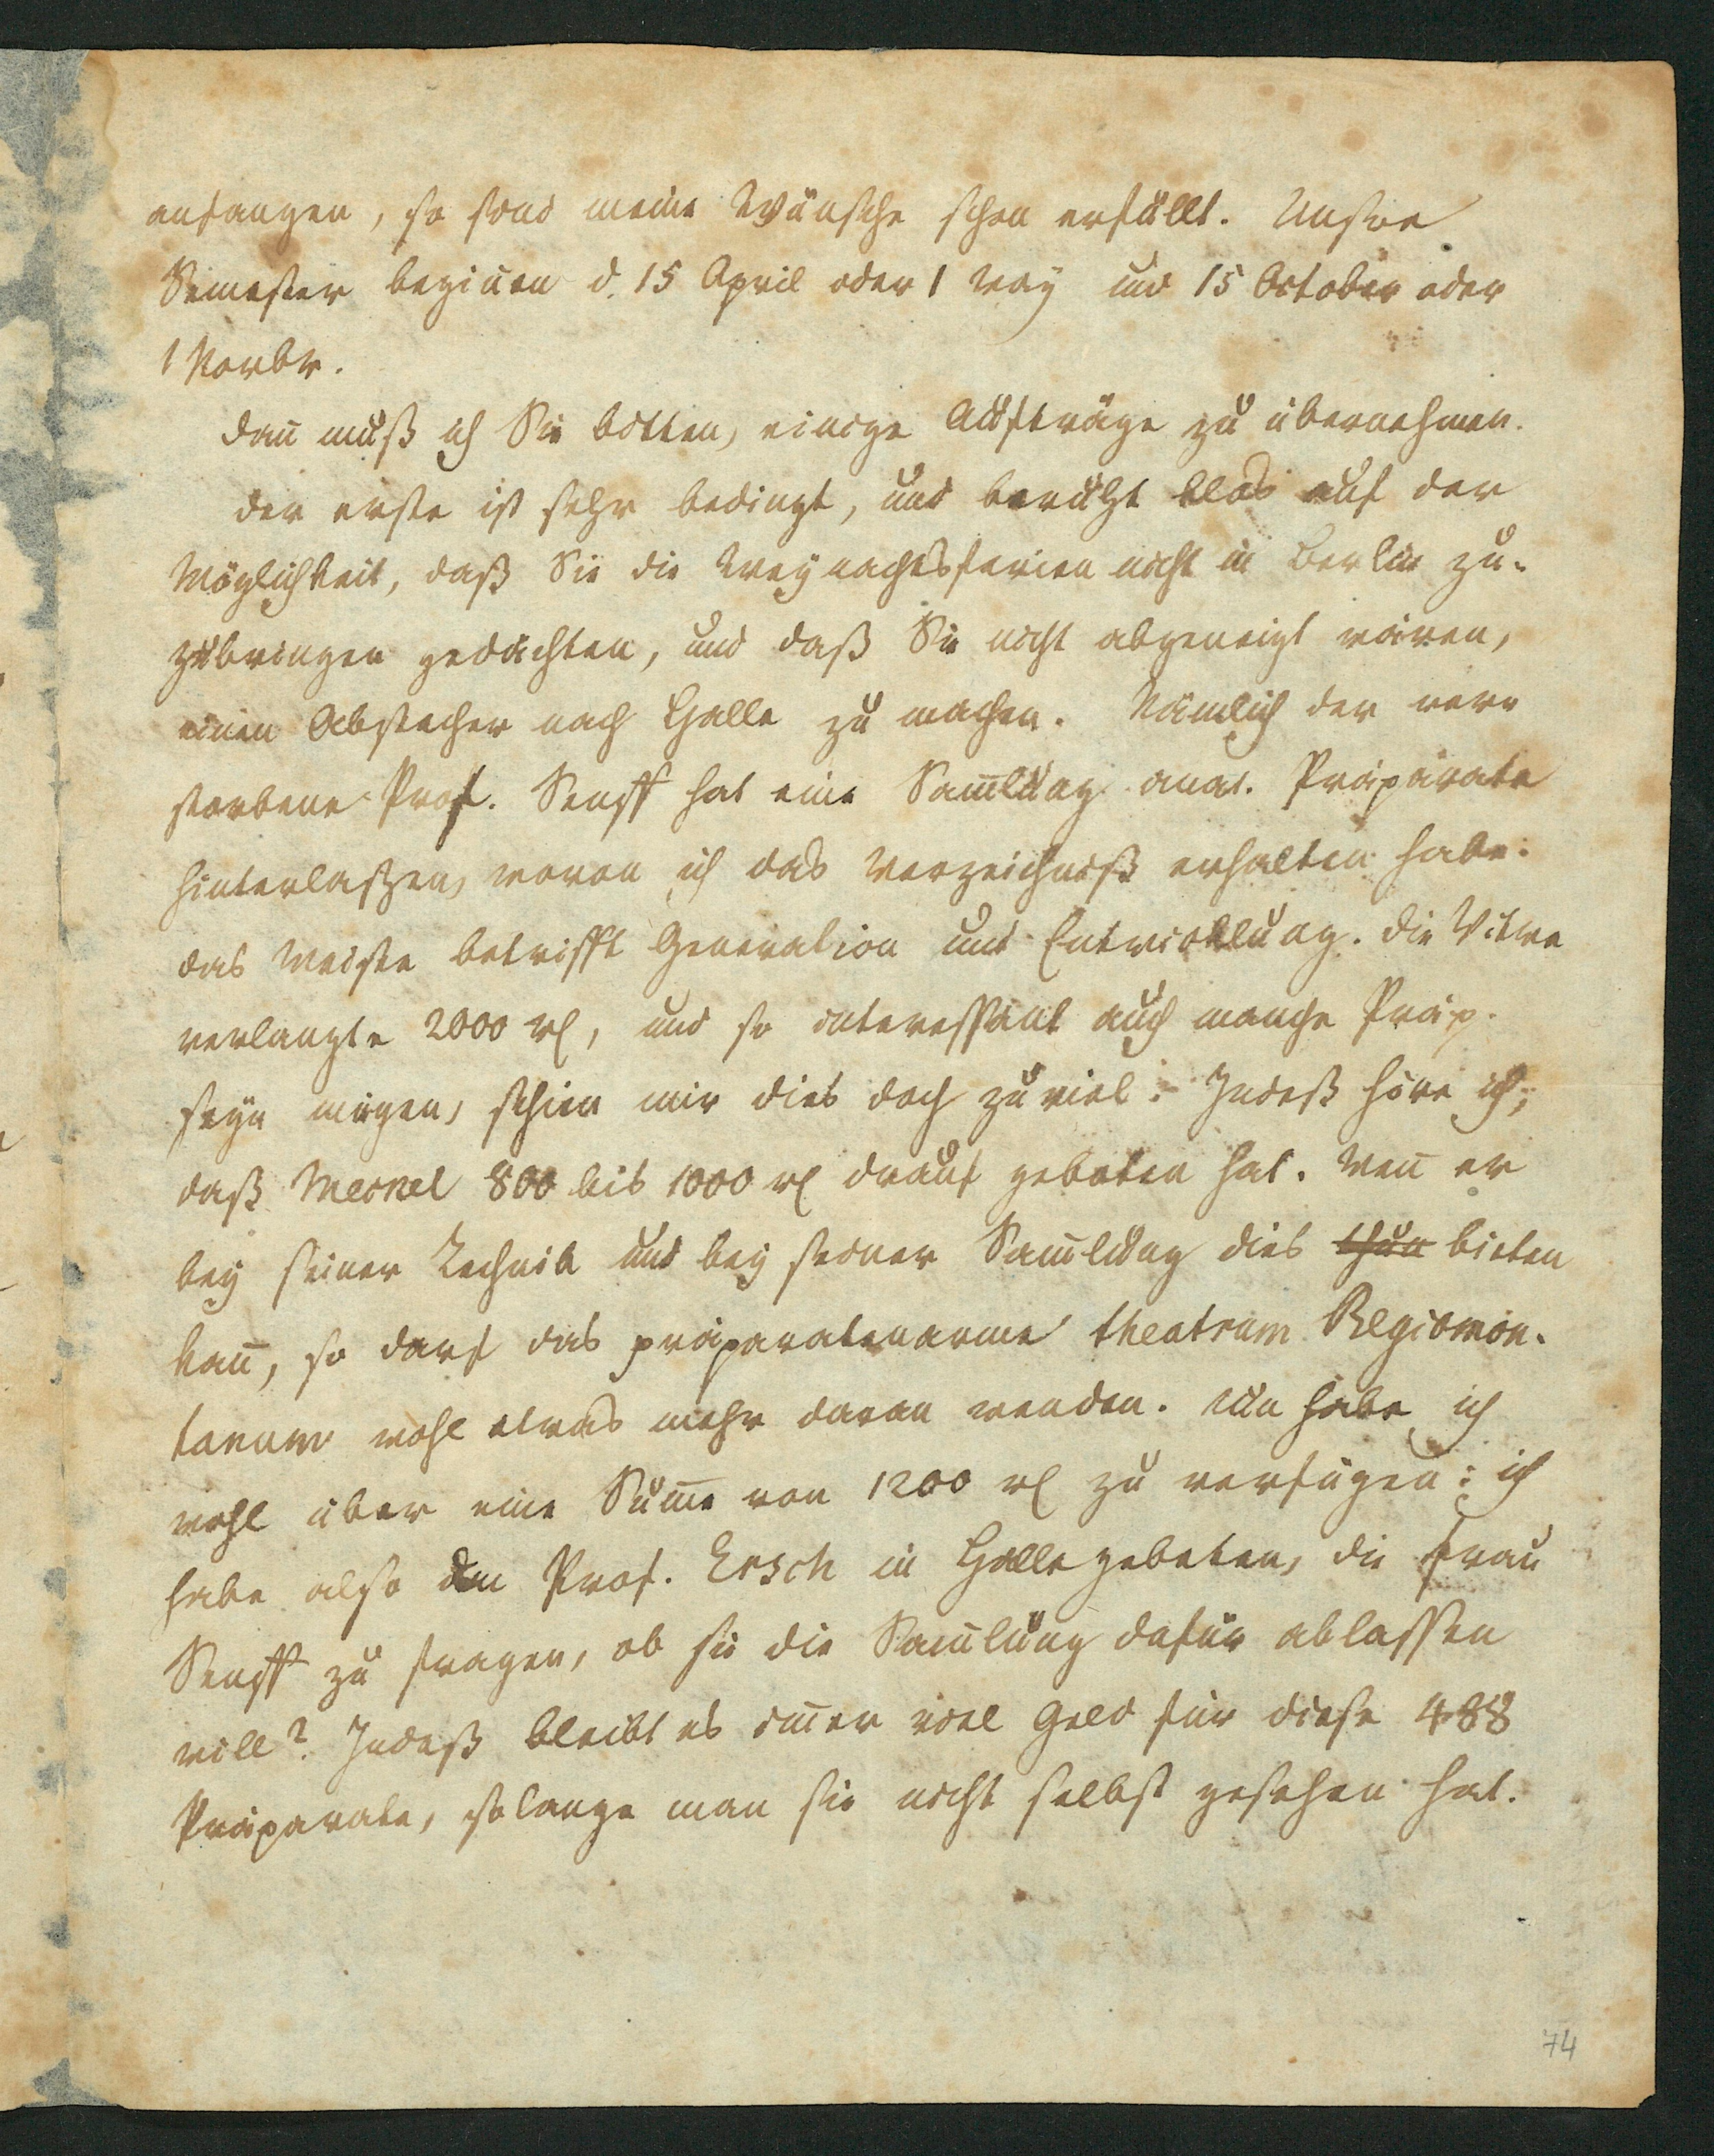 anfangen, so sind meine Wünsche schon erfüllt. Unsere
Semester beginnen d. 15 April oder 1 May und 15 October oder
1 Novbr.
Dann muß ich Sie bitten, einige Aufträge zu übernehmen.
Der erste ist sehr bedingt, und beruht blos auf der
Möglichkeit, daß Sie die Weynachtsferien nicht in Berlin zu-
zubringen gedächten, und daß Sie nicht abgeneigt wären,
einen Abstecher nach Halle zu machen. Nämlich der ver
storbene Prof. Senff hat eine Sammlung anat. Präparate
hinterlaßen, wovon ich das Verzeichniß erhalten habe.
Das Meiste betrifft Generation und Entwicklung. Die Witwe
verlangte 2000 rl, und so interessant auch manche Präp.
seyn mögen, schien mir dies doch zuviel. Indeß höre ich,
daß Meckel 800 bis 1000 rl drauf geboten hat. Wenn er
bey seiner Technik und bey seiner Sammlung dies thun bieten
kann, so darf das präparatenarme theatrum Regiomon-
tanum wohl etwas mehr daran wenden. Nun habe ich
wohl über eine Summe von 1200 rl zu verfügen; ich
habe also den Prof. Ersch in Halle gebeten, die Frau
Senff zu fragen, ob sie die Sammlung dafür ablassen
will? Indeß bleibt es immer viel Geld für diese 488
Präparate, solange man sie nicht selbst gesehen hat.
74